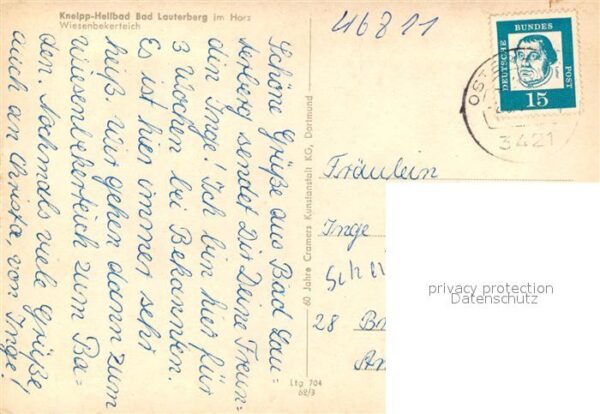 Kneipp-Heilbad Bad Lauterberg im Harz
Wiesenbekerteich
46811
Schöne Grüße aus Bad Lau-
terberg sendet Dir Deine Freun-
din Inge! Ich bin hier für
3 Wochen bei Bekannten.
Es ist hier immer sehr
heiß. Wir gehen dann zum
Wiesenbekerteich zum Ba-
den. Nochmals viele Grüße
auch an Christa, von Inge!
60 Jahre Cramers Kunstanstalt KG, Dortmund
Ltg 704
62/3
DEUTSCHE
BUNDES
POST
15
3421
Fräulein
Inge
28
privacy protection
Datenschutz